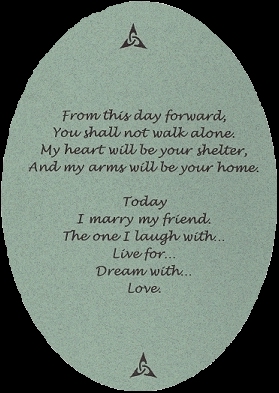 From this day forward,
You shall not walk alone.
My heart will be your shelter,
And my arms will be your home.
Today
I marry my friend.
The one I laugh with...
Live for...
Dream with...
Love.